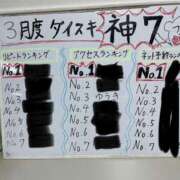 3月度 ダイスキ 神7
リピートランキング
No.1
No.2
No.3
No.4
No.5
No.6
No.7
アクセスランキング
No.1
No.2
No.3
No.4
No.5
No.6
No.7
ネット予約ランキング
No.1
No.2
No.3
No.4
No.5
No.6
No.7